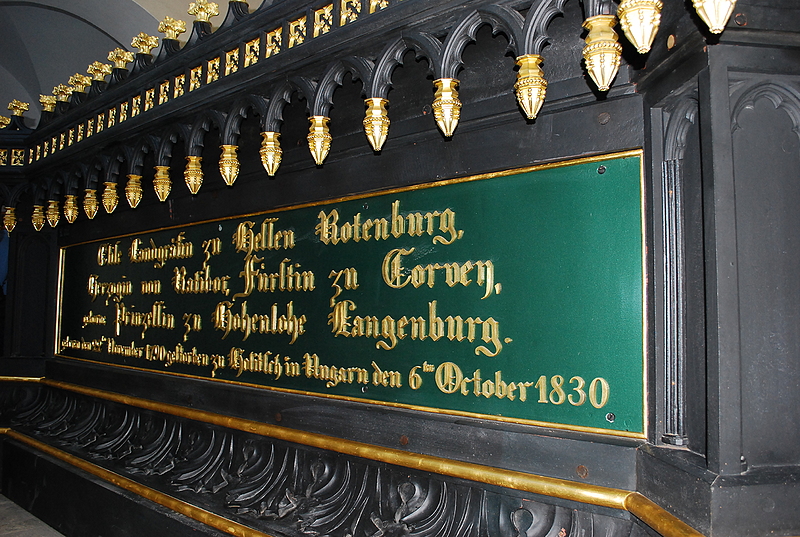 Elise Landgräfin zu Hessen Rotenburg,
Herzogin von Ratibor, Fürstin zu Corvey,
geborne Prinzessin zu Hohenlohe Langenburg.
geboren den 22ten November 1790 gestorben zu Holitsch in Ungarn den 6ten October 1830